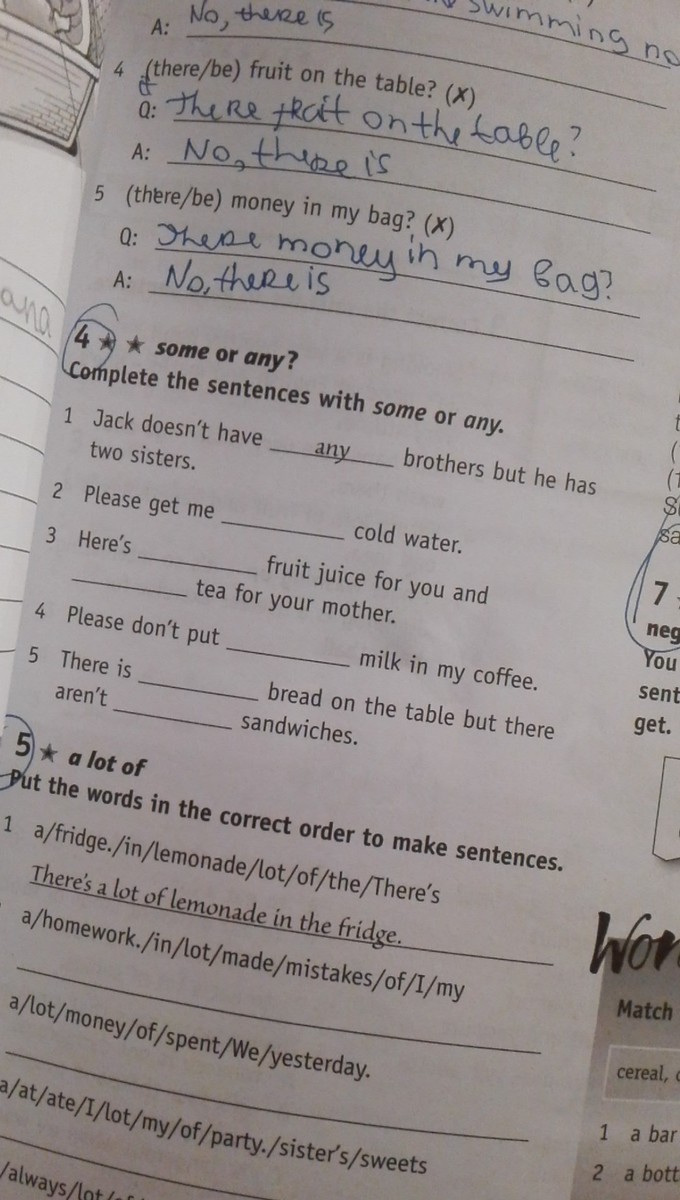 swimming
A: No, there is
4 (there/be) fruit on the table? (X)
Q: There fruit on the table?
A: No, there is
5 (there/be) money in my bag? (X)
Q: There money in my bag?
A: No, there is
4 ★ ★ some or any?
Complete the sentences with some or any.
1 Jack doesn't have any brothers but he has
two sisters.
2 Please get me ________ cold water.
3 Here's ________ fruit juice for you and
________ tea for your mother.
4 Please don't put ________ milk in my coffee.
5 There is ________ bread on the table but there
aren't ________ sandwiches.
5 ★ a lot of
Put the words in the correct order to make sentences.
1 a/fridge./in/lemonade/lot/of/the/There's
There's a lot of lemonade in the fridge.
a/homework./in/lot/made/mistakes/of/I/my
a/lot/money/of/spent/We/yesterday.
a/at/ate/I/lot/my/of/party./sister's/sweets
/always/lot/
ana
7
neg
You
sent
get.
Match
cereal,
1 a bar
2 a bott